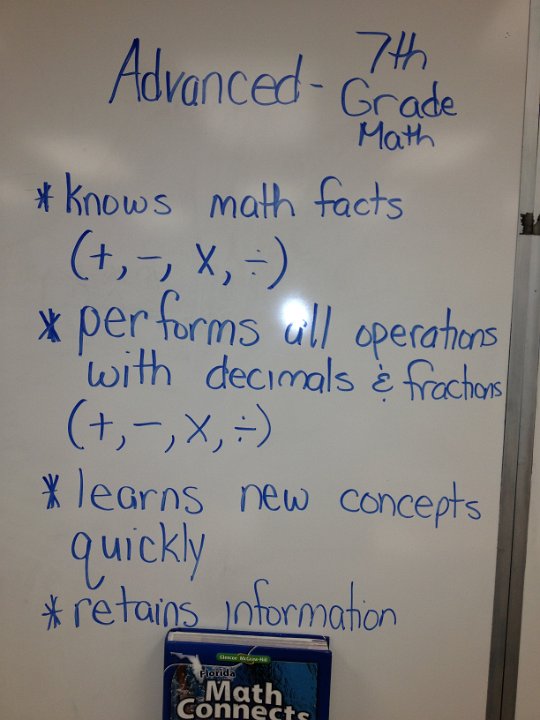 Advanced - 7th
Grade
Math
* knows math facts
(+, -, x, ÷)
* performs all operations
with decimals & fractions
(+, -, x, ÷)
* learns new concepts
quickly
* retains information
Glencoe McGraw-Hill
Florida
Math
Connects